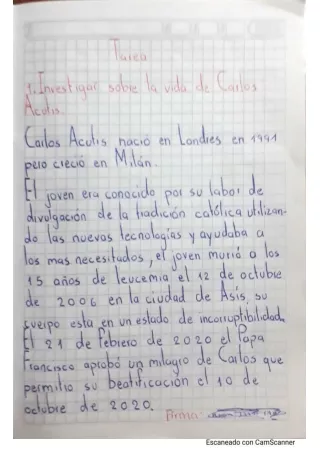 Tarea
1. Investigar sobre la vida de Carlos
Acutis.
Carlos Acutis nació en Londres en 1991
pero creció en Milán.
El joven era conocido por su labor de
divulgación de la tradición católica utilizan-
do las nuevas tecnologías y ayudaba a
los mas necesitados, el joven murió a los
15 años de leucemia el 12 de octubre
de 2006 en la ciudad de Asís, su
cuerpo esta en un estado de incorruptibilidad.
El 21 de febrero de 2020 el Papa
Francisco aprobó un milagro de Carlos que
permitio su beatificación el 10 de
octubre de 2020.
Firma:
Escaneado con CamScanner